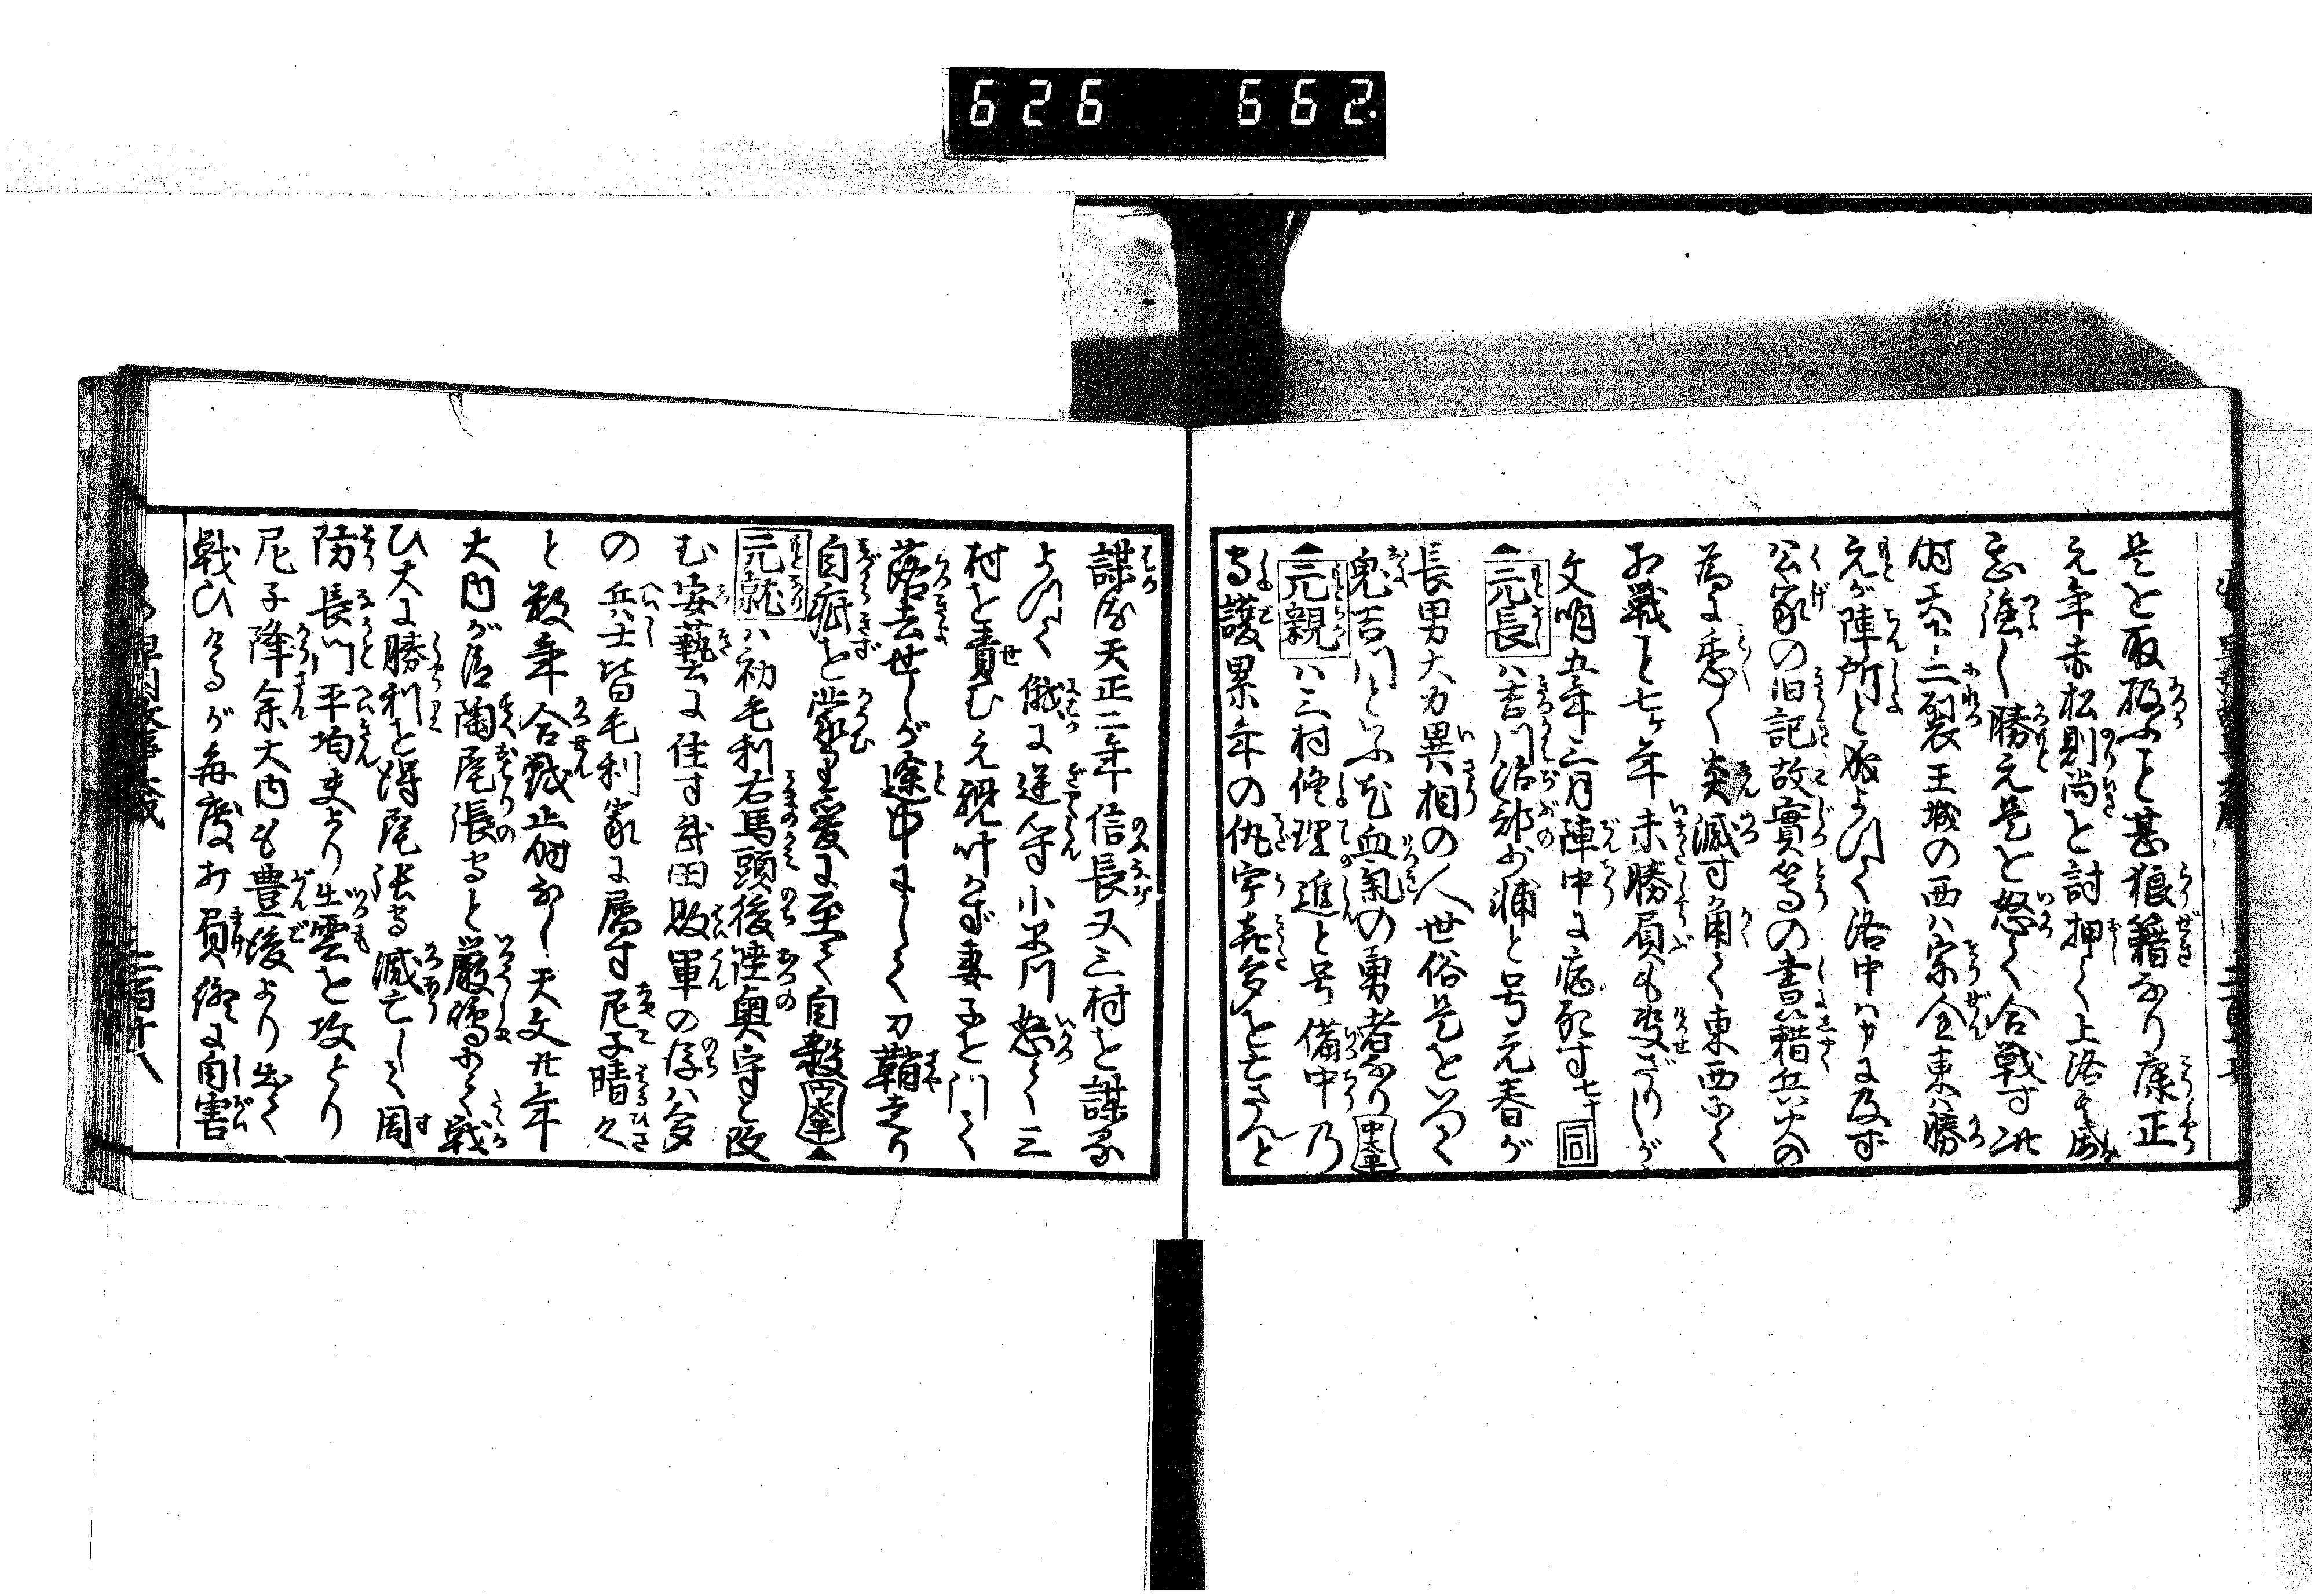 626 662.
是を取扱ふこと甚狼籍なり康正
元年赤松則尚を討押て上洛す威
忽強し勝元是を怒て合戦す此
時天下二裂王城の西ハ宗全東ハ勝
元が陣所と成よつて洛中ハ申に及ず
公家の旧記故實等の書籍兵火の
為に悉く炎滅す角て東西にて
相戦こと七ヶ年未勝屓も决ざりしが
文明五年三月陣中に病死す七十同
元長ハ吉川治部少輔と号元春が
長男大力異相の人世俗是をいつて
鬼吉川といふ尤血氣の勇者なり
元親ハ三村修理進と号備中乃
守護累年の仇宇喜多を亡さんと
謀る天正二年信長又三村を謀る
よつて俄に逆心す小早川怒て三
村を責む元親叶ハず妻子を
落去せしが途中にして刀鞘走り
自疵を蒙る至爰に至て自殺
元就ハ初毛利右馬頭後陸奥守と改
む安藝に住す武田敗軍の後ハ多
の兵士皆毛利家に属す尼子晴久
と数年合戦止時なし天文廿年
大内が臣陶尾張守と厳嶋にて戦
ひ大に勝利を得尾張守滅亡して周
防長門平均夫より出雲を攻とり
尼子降参大内も豊後より出て
戦ひけるが毎度打屓終に自害